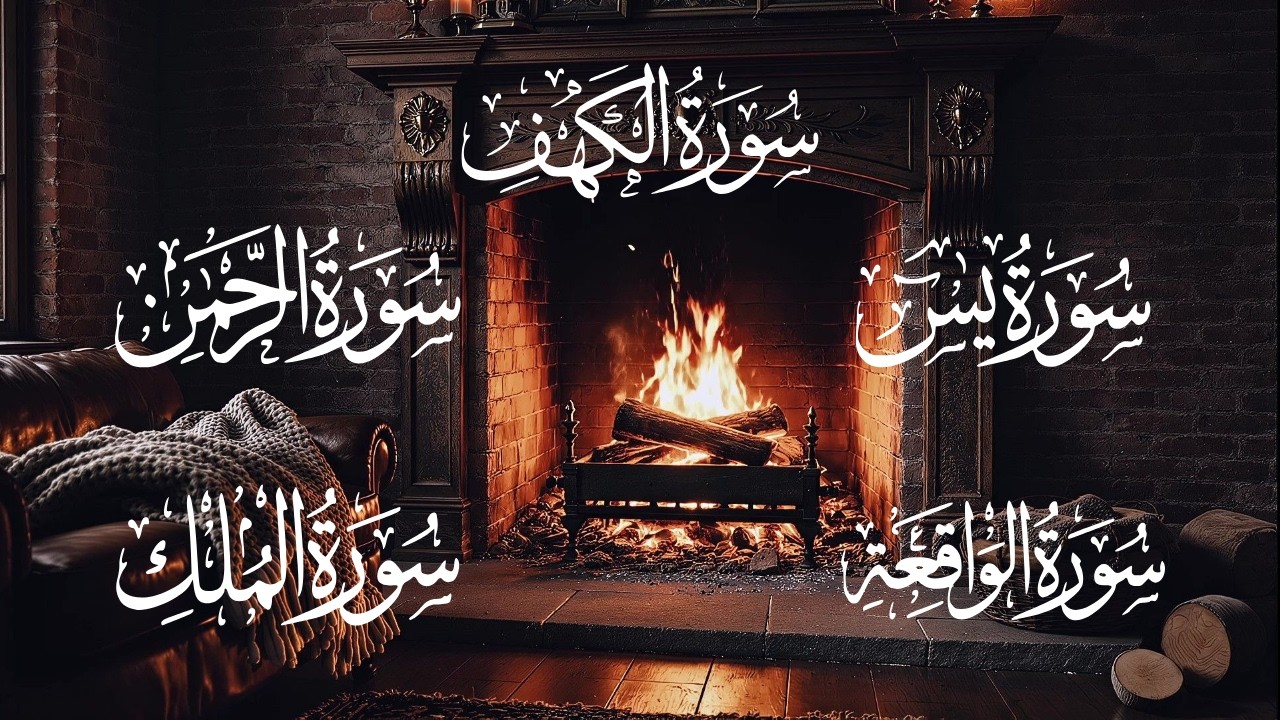 سُورَةُ الكَهْفِ
سُورَةُ يسٓ
سُورَةُ الرَّحْمَٰنِ
سُورَةُ الوَاقِعَةِ
سُورَةُ المُلْكِ